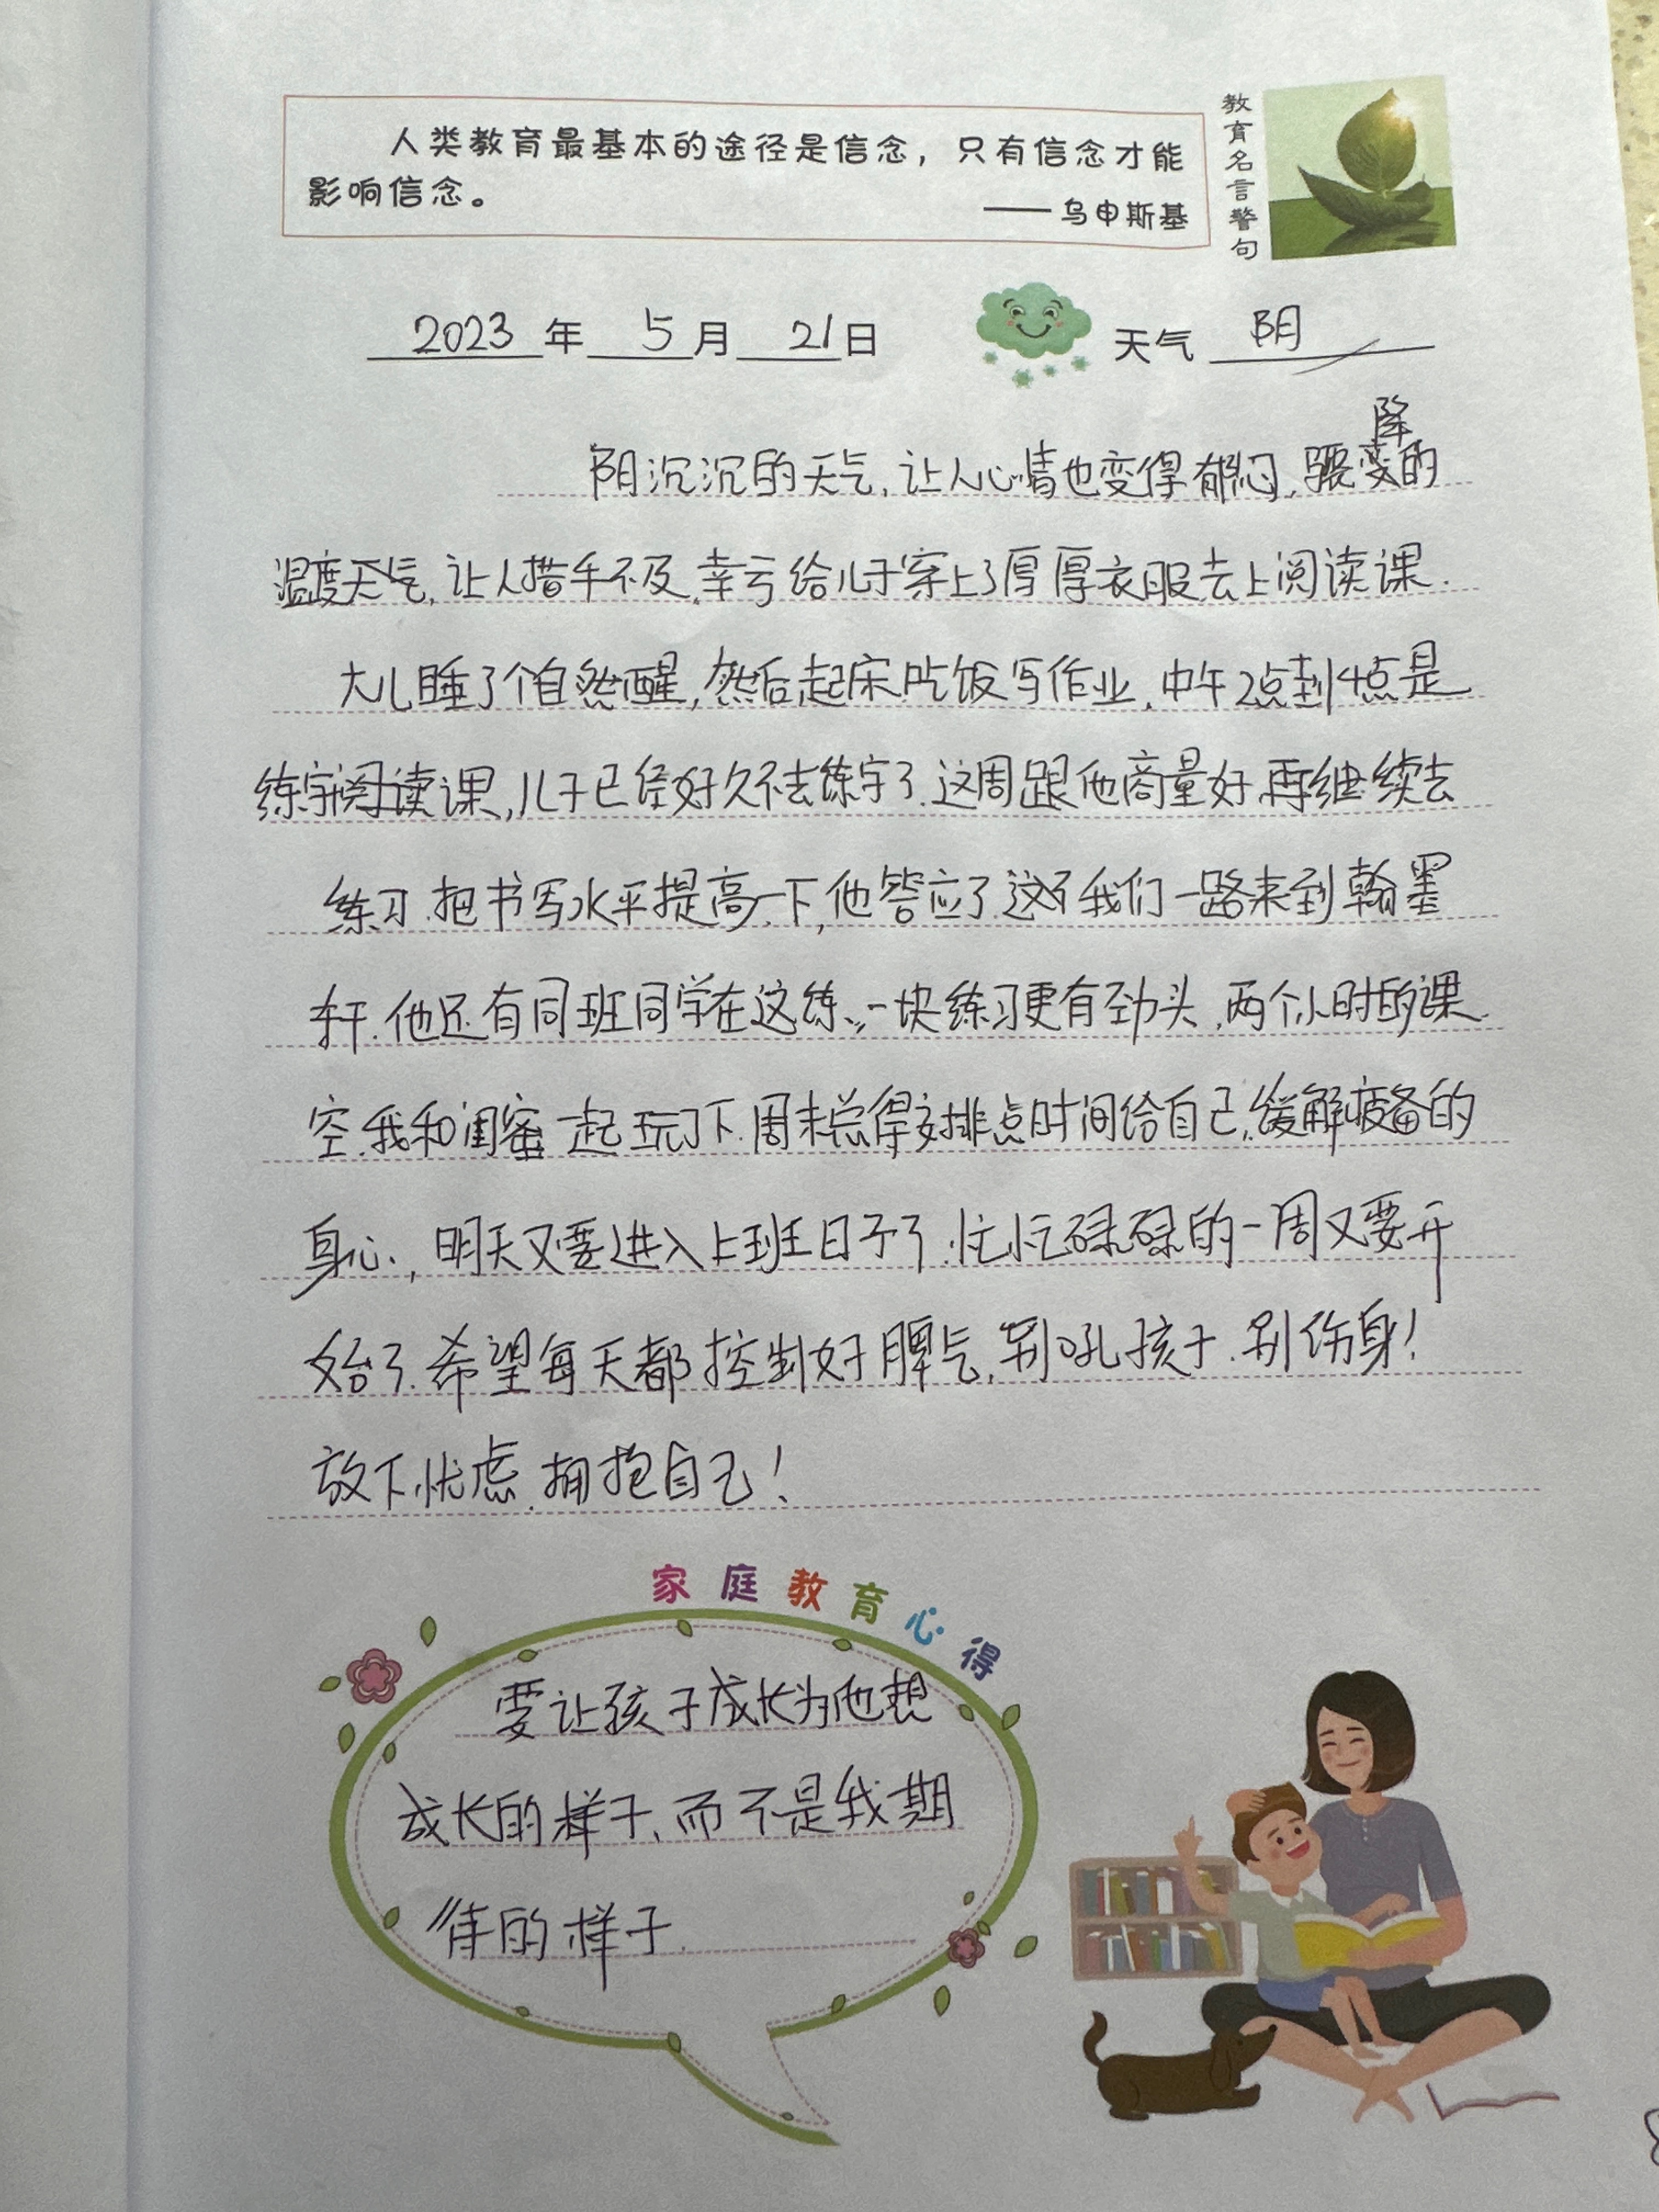 人类教育最基本的途径是信念，只有信念才能
影响信念。
——乌申斯基
教育名言警句
2023年5月21日
天气 阴
降
阴沉沉的天气，让人心情也变得郁闷，骤变的
温度天气，让人措手不及，幸亏给儿子穿上了厚厚衣服去上阅读课.
大儿睡了个自然醒，然后起床吃饭写作业，中午2点到4点是
练字阅读课，儿子已经好久不去练字了.这周跟他商量好，再继续去
练习.把书写水平提高一下，他答应了.这不我们一路来到翰墨
轩.他还有同班同学在这练、一块练习更有劲头，两个小时的课
空.我和闺蜜一起玩了下.周末总得安排点时间给自己，缓解疲备的
身心.，明天又要进入上班日子了.忙忙碌碌的一周又要开
始了.希望每天都控制好脾气，别吼孩子.别伤身！
放下忧虑.拥抱自己！
家庭教育心得
要让孩子成长为他想
成长的样子、而不是我期
待的样子.